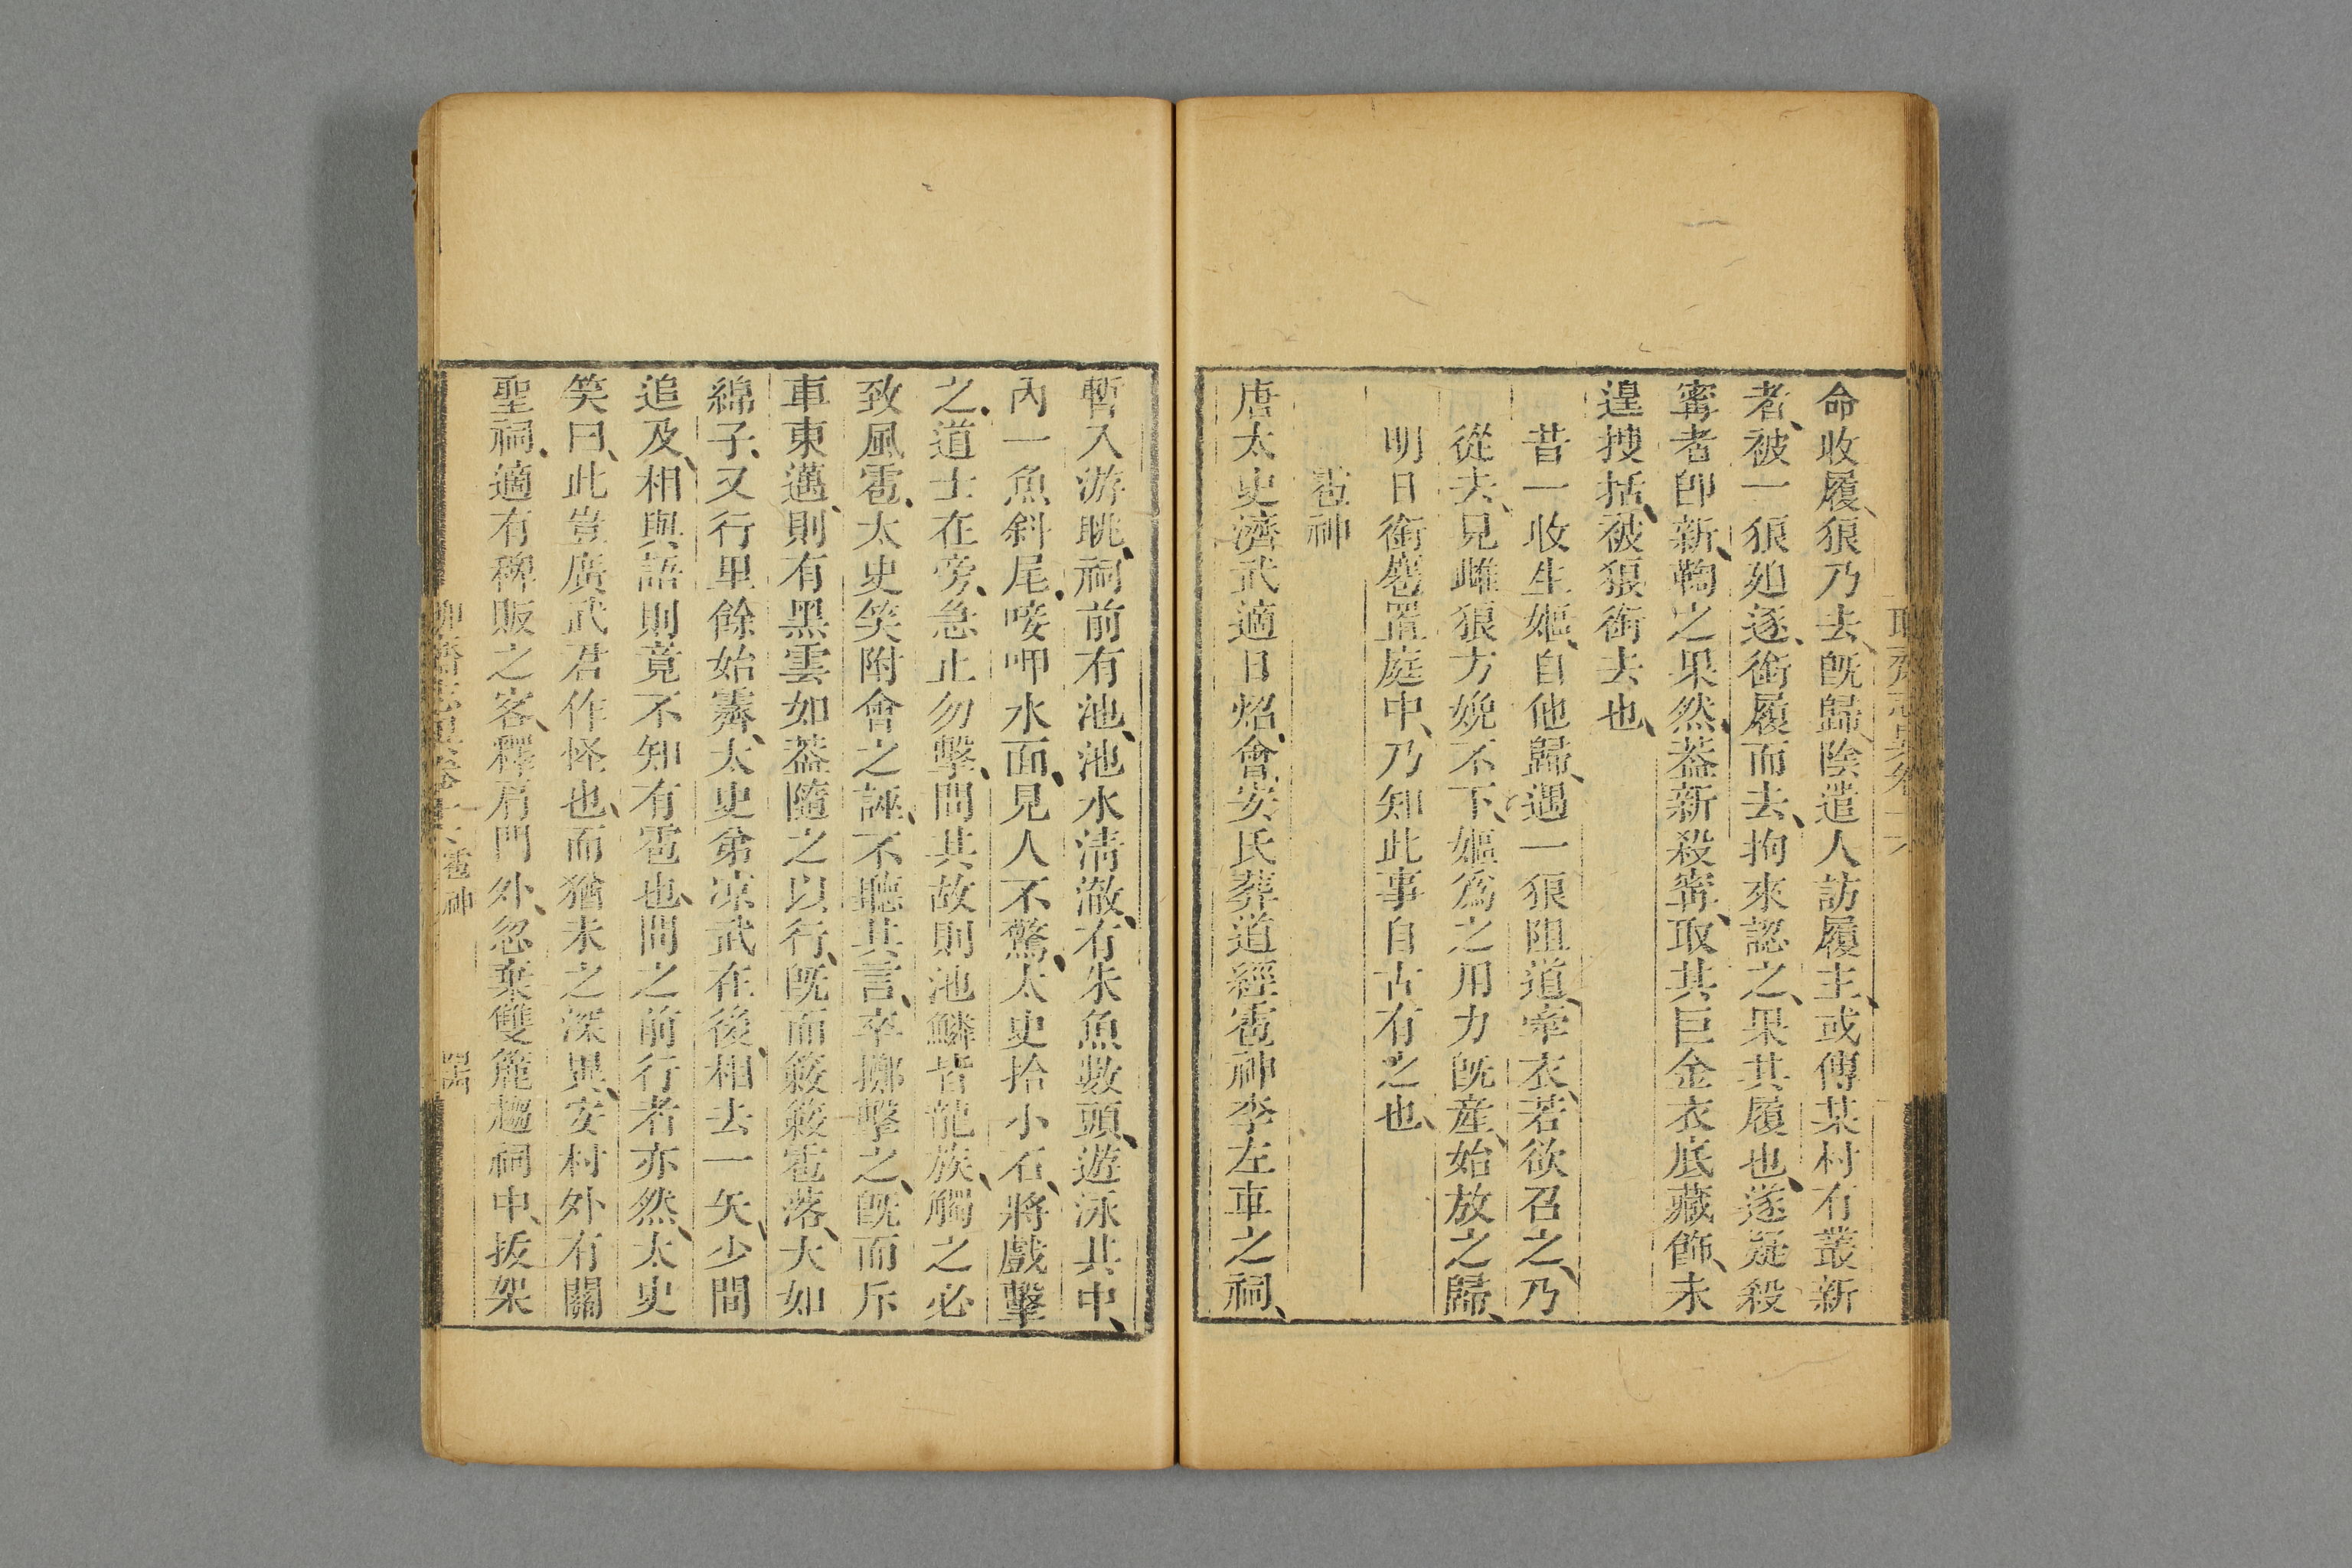 命收履、狼乃去、旣歸、陰遣人訪履主、或傳某村有叢新
者、被一狼廹逐、銜履而去、拘來認之、果其履也、遂疑殺
寗者卽新、鞫之果然、葢新殺寗、取其巨金、衣底藏飾、未
遑搜括、被狼銜去也、
昔一收生嫗、自他歸、遇一狼阻道、牽衣、若欲召之、乃
從去、見雌狼方娩不下、嫗爲之用力旣産、始放之歸、
明日銜麅置庭中、乃知此事自古有之也、
雹神
唐太史濟武適日炤、會安氏葬道經雹神李左車之祠、
暫入游眺、祠前有池、池水淸澈、有朱魚數頭、遊泳其中、
內一魚斜尾、唼呷水面、見人不驚、太史拾小石、將戲擊
之、道士在旁、急止勿擊、問其故、則池鱗皆龍族、觸之必
致風雹、太史笑附會之誣、不聽其言、卒擲擊之、旣而斥
車東邁、則有黑雲如葢隨之以行、旣而簌簌雹落、大如
綿子、又行里餘始霽、太史弟凉武在後、相去一矢、少間
追及、相與語則竟不知有雹也、問之前行者亦然、太史
笑曰、此豈廣武君作怪也、而猶未之深異、安村外有關
聖祠、適有稗販之客、釋肩門外、忽棄雙簏趨祠中、拔架
雹神